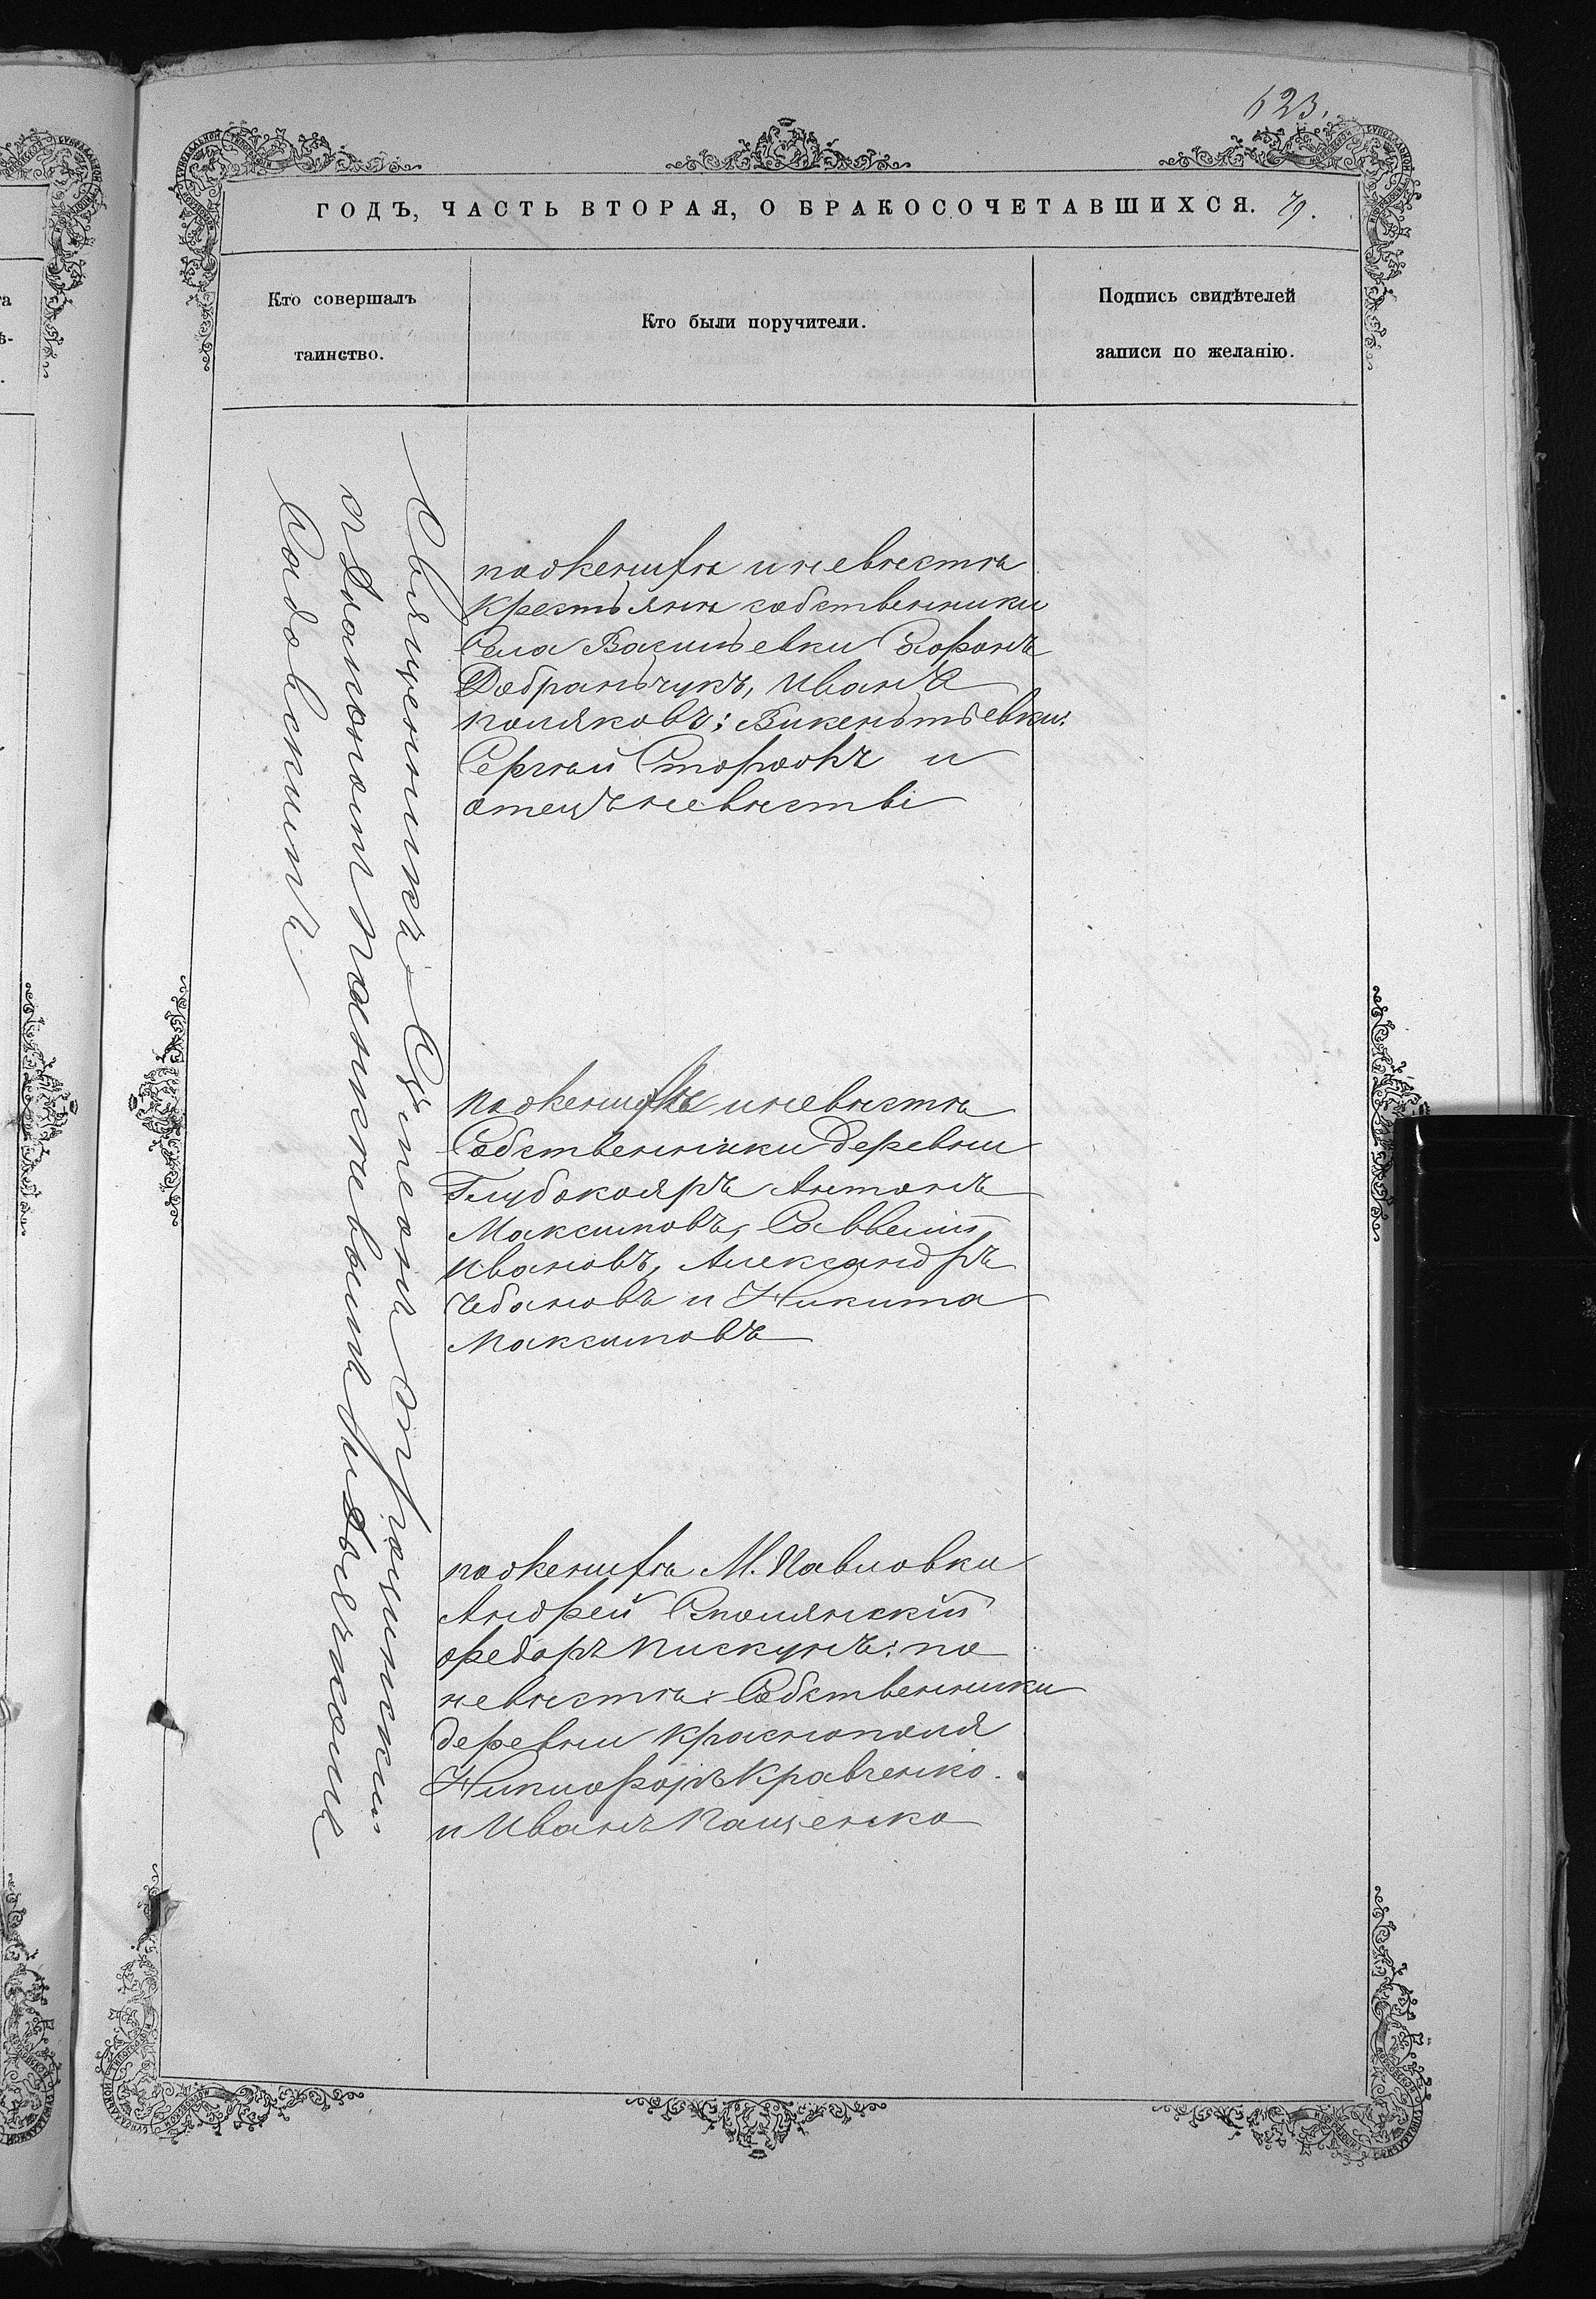 623.
ГОДЪ, ЧАСТЬ ВТОРАЯ, О БРАКОСОЧЕТАВШИХСЯ. 79.
Кто совершалъ
таинство.
Кто были поручители.
Подпись свидѣтелей
записи по желанію.
Священникъ Симеонъ
съ Діакономъ
по женихѣ и невѣстѣ
крестьяне собственники
Села Васильевки Софонъ
Добраньчукъ, Иванъ
Поляковъ; Викентьевки:
Сергѣй Сторожъ и
отецъ невѣсты
по женихѣ и невѣстѣ
Собственники деревни
Глубокояръ Антонъ
Максимовъ, Савелій
Ивановъ, Александръ
Чебановъ и Никита
Максимовъ
по женихѣ М. Павловки
Андрей Смолянскій
Федоръ Пискунъ: по
невѣстѣ: Собственники
деревни Краснополя
Никифоръ Кравченко.
и Иванъ Пащенко